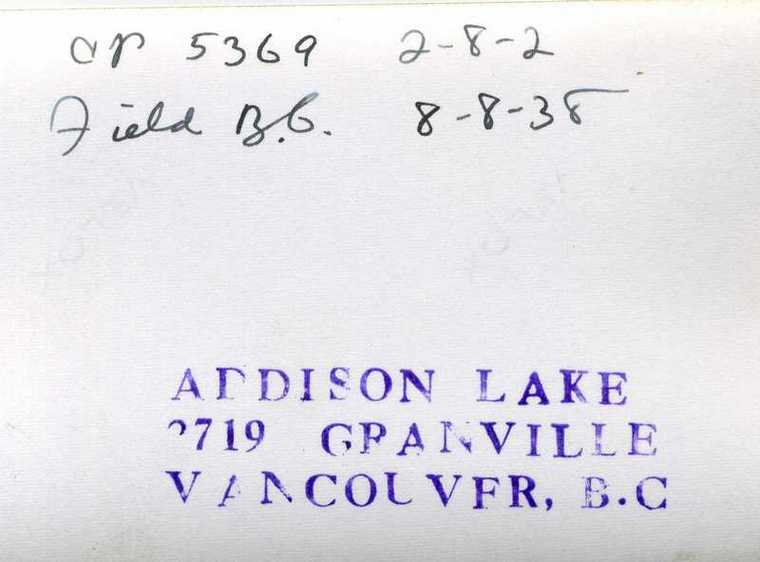 CP 5369 2-8-2
Field B.C. 8-8-38
ADDISON LAKE
2719 GRANVILLE
VANCOUVER, B.C